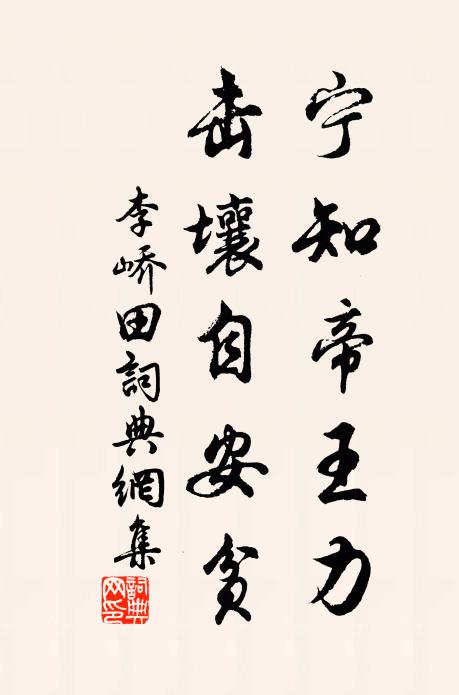 宁知帝王力
击壤自安贫
李峤田詞典網集
詞典网印